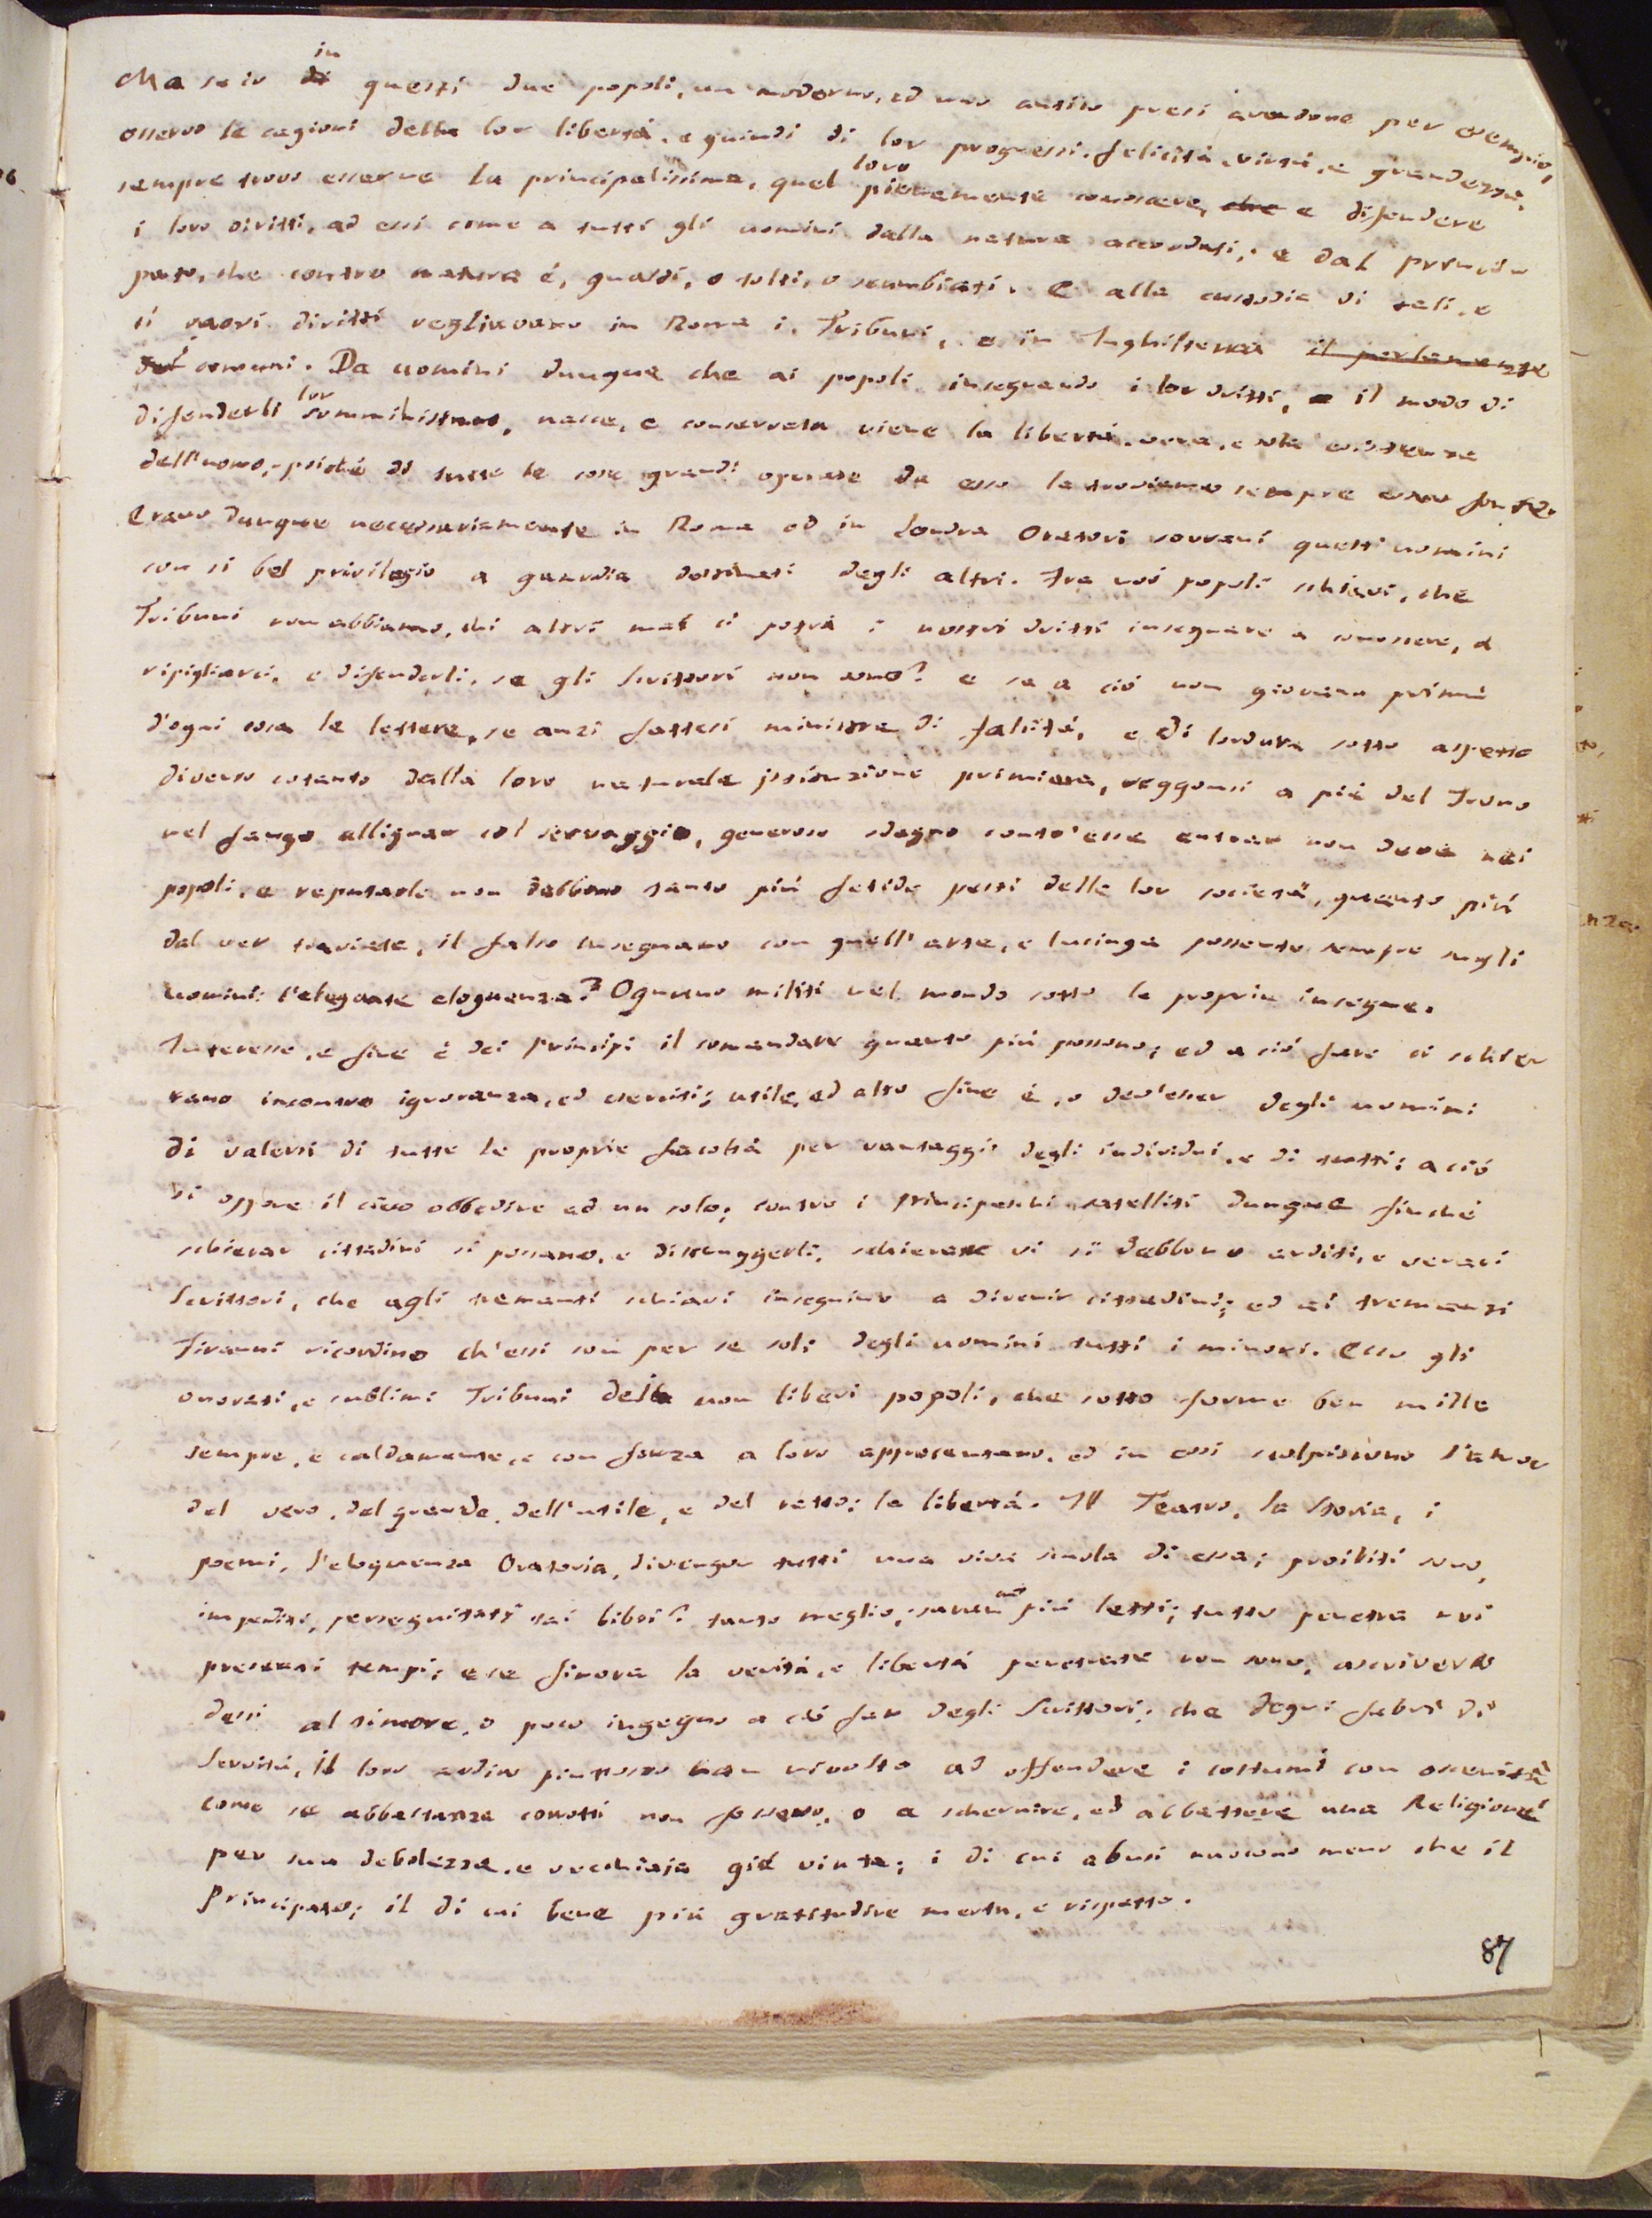 Ma se io in di questi due popoli, un moderno, ed uno antico presi avendone per esempio,
osservo le cagioni della lor libertà, e quindi di lor progressi, felicità, virtù, e grandezza,
sempre trovo esserne la principalissima, quel loro pienamente conoscere, che e difendere
i loro diritti, ad essi come a tutti gli uomini dalla natura accordati; e dal princi
pato, che contro natura è, guasti, o tolti, o scambiati. E alla custodia di tali, e
sì sacri diritti vegliavano in Roma i Tribuni, e in Inghilterra il parlamento
i comuni. Da uomini dunque che ai popoli insegnando i lor dritti, e il modo di
difenderli lor somministrano, nasce, e conservata viene la libertà, vera, e sola esistenza
dell'uomo, poiché di tutte le cose grandi operate da esso la troviamo sempre esser fonte.
Erano dunque necessariamente in Roma ed in Londra Oratori sovrani questi uomini
con sì bel privilegio a guardia destinati degli altri. Fra noi popoli schiavi, che
Tribuni non abbiamo, chi altri mai ci potrà i nostri dritti insegnare a conoscere, a
ripigliarci, e difenderli, se gli Scrittori non sono? e se a ciò non giovano prima
d'ogni cosa le lettere, se anzi fattesi ministre di falsità, e di lordura sotto aspetto
diverso cotanto dalla loro naturale istituzione primiera, veggonsi a piè del Trono
nel fango allignar col servaggio, generoso sdegno contr'esse entrar non deve nei
popoli, e reputarle non debbono tanto più fetide pesti delle lor società, quanto più
dal ver traviate, il falso insegnano con quell'arte, e lusinga possente sempre sugli
uomini: l'elegante eloquenza? Ognuno militi nel mondo sotto le proprie insegne.
Interesse, e fine è dei Principi il comandare quanto più possono; ed a ciò fare ci schier
rano incontro ignoranza, ed eserciti; utile, ed alto fine è, o dev'esser degli uomini
di valersi di tutte le proprie facoltà per vantaggio degli individui, e di tutti; a ciò
si oppone il cieco obbedire ad un solo; contro i principeschi satelliti dunque finché
schierar cittadini si possano, e distruggerli, schierare vi si debbono arditi, e veraci
Scrittori, che agli tremanti schiavi insegnino a divenir cittadini; ed ai tremanti
Tiranni ricordino ch'essi son per se soli degli uomini tutti i minori. Ecco gli
onorati, e sublimi Tribuni dei non liberi popoli, che sotto forme ben mille
sempre, e caldamente, e con forza a loro appresentano, ed in essi scolpiscono l'amor
del vero, del grande, dell'utile, e del retto: la libertà. Il Teatro, la Storia, i
poemi, l'eloquenza Oratoria, divengon tutti una viva scuola di essa; proibiti sono,
impediti, perseguitati tai libri? tanto meglio; saran più letti; tutto penetra nei
presenti tempi; e se finora la verità, e libertà penetrate non sono, ascriverlo
dessi al timore, o poco ingegno a ciò far degli Scrittori; che degni fabri di
servitù, il loro ardire piuttosto han rivolto ad offendere i costumi con oscenità
come se abbastanza corrotti non fossero, o a schernire, ed abbattere una Religione
per sua debolezza, e vecchiaja già vinta; i di cui abusi nuocono meno che il
Principato; il di cui bene più gratitudine merta, e rispetto.
87